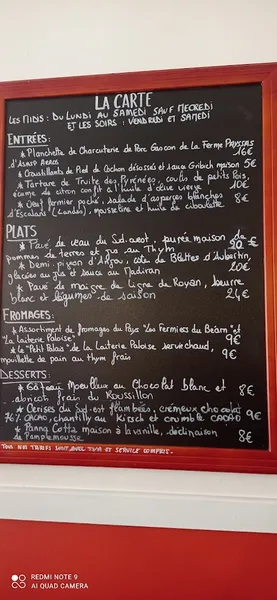 LA CARTE
LES MIDIS: DU LUNDI AU SAMEDI SAUF MECREDI
ET LES SOIRS: VENDREDI ET SAMEDI
ENTRÉES:
* Planchette de Charcuterie de Porc Gascon de la Ferme
d'Assap Arros 16€
* Croustillants de Pied de Cochon désossés et sauce Gribich maison 5€
* Tartare de Truite des Pyrénées, coulis de petits Pois,
écume de citron confit à l'huile d'olive vierge 10€
* Oeuf fermier poché, salade d'asperges blanches 8€
d'Escalans (Landes), mousseline et huile de ciboulette
PLATS
* Pavé de veau du Sud-ouest, purée maison de
pommes de terres et jus au Thym 20€
* Demi-pigeon d'Anjou, côtes de Blettes d'Aubertin,
glacées au jus et sauce au Madiran 20€
* Pavé de maigre de Ligne de Royan, beurre
blanc et légumes de saison 24€
FROMAGES:
* Assortiment de fromages du Pays "Les Fermiers du Béarn" et
"La laiterie Paloise" 9€
* Le "Petit Palois" de la Laiterie Paloise servi chaud,
mouillette de pain au thym frais 9€
DESSERTS:
* Gâteau Moelleux au Chocolat blanc et 8€
abricot frais du Roussillon
* Cerises du Sud-est flambées, crémeux chocolat 9€
76% CACAO, chantilly au Kirsch et crumble CACAO
* Panna Cotta maison à la vanille, déclinaison
de Pamplemousse 8€
TOUS NOS TARIFS SONT AVEC TVA ET SERVICE COMPRIS.
REDMI NOTE 9
AI QUAD CAMERA